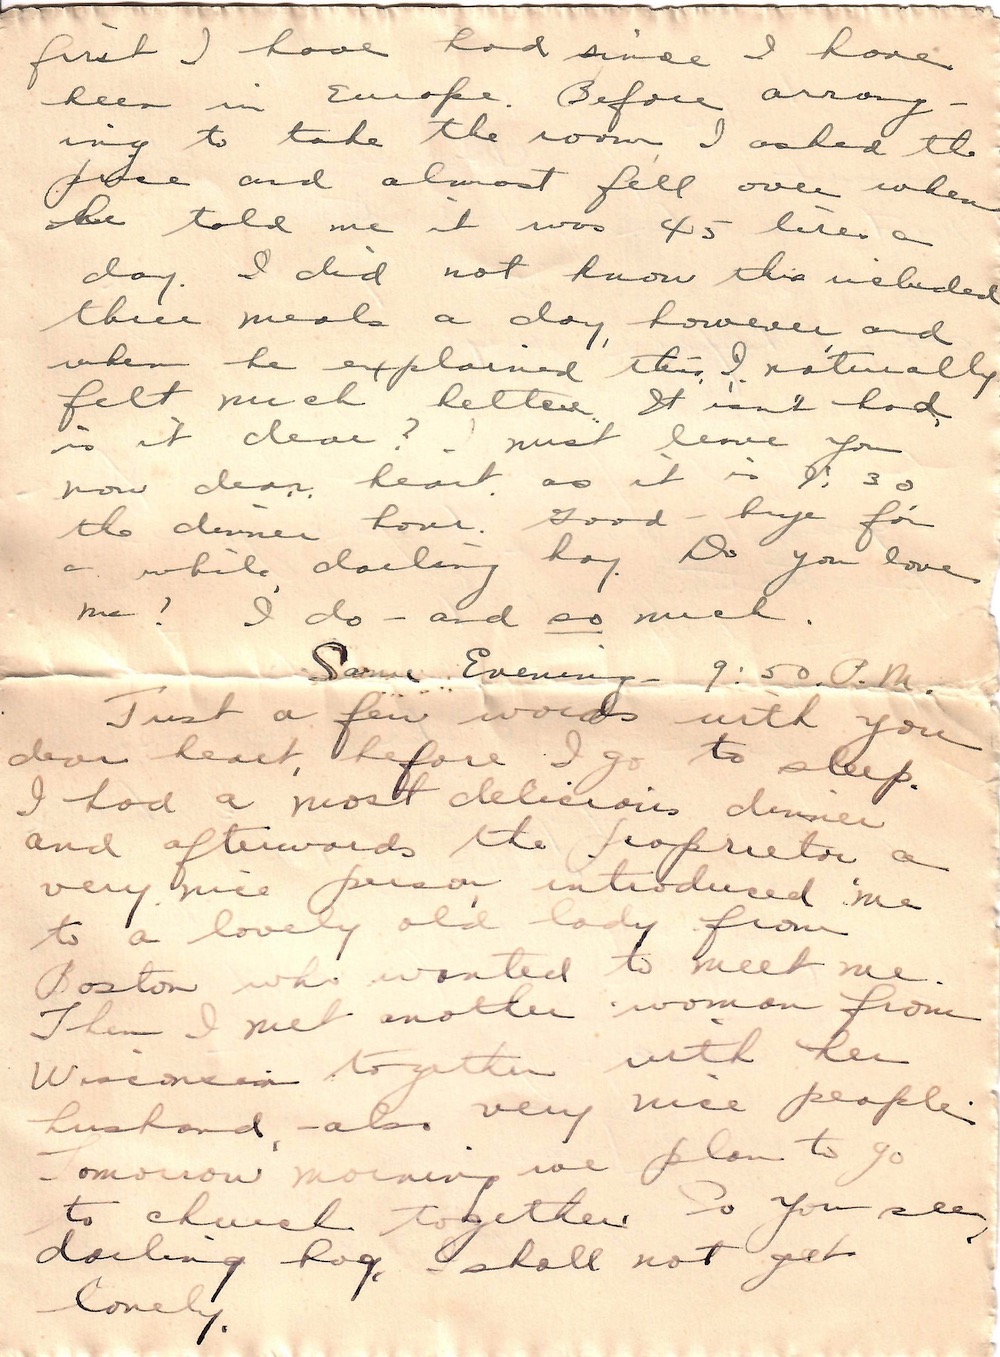 first I have had since I have
been in Europe. Before arrang-
ing to take the room, I asked the
price and almost fell over when
he told me it was 45 lires a
day. I did not know this included
three meals a day, however, and
when he explained this, I naturally
felt much better. It isn't bad,
is it dear? I must leave you
now dear heart as it is 7:30
the dinner hour. Good-bye for
a while, darling boy. Do you love
me? I do - and so much.
Same Evening - 9:50 P.M.
Just a few words with you
dear heart, before I go to sleep.
I had a most delicious dinner
and afterwards the proprietor a
very nice person, introduced me
to a lovely old lady from
Boston who wanted to meet me.
Then I met another woman from
Wisconsin together with her
husband, - also very nice people.
Tomorrow morning we plan to go
to church together. So you see,
darling boy, I shall not get
lonely.